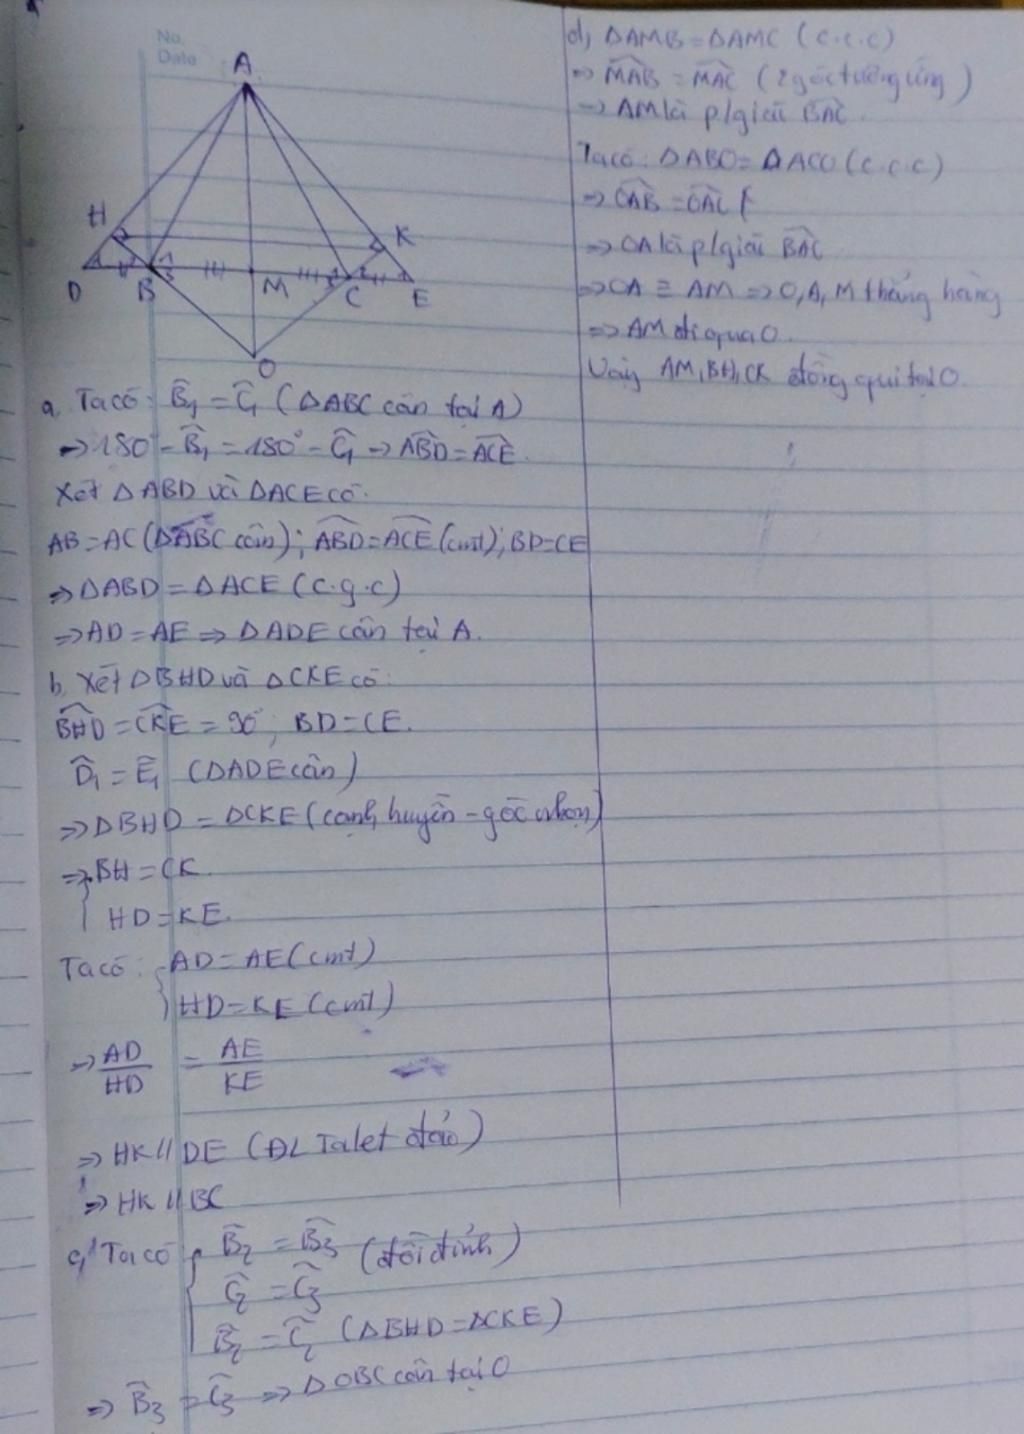 No.
Date
A
H
K
D
B
M
C
E
O
a, Ta có: B̂₁ = Ĉ₁ (ΔABC cân tại A)
→ 180° - B̂₁ = 180° - Ĉ₁ → ABD = ACE.
Xét ΔABD và ΔACE có:
AB = AC (ΔABC cân); ABD = ACE (cmt); BD = CE
⇒ ΔABD = ΔACE (c.g.c)
⇒ AD = AE ⇒ ΔADE cân tại A.
b, Xét ΔBHD và ΔCKE có:
BHD = CKE = 90°, BD = CE.
D̂₁ = Ê₁ (ΔADE cân)
⇒ ΔBHD = ΔCKE (cạnh huyền - góc nhọn)
⇒ { BH = CK.
HD = KE.
Ta có: { AD = AE (cmt)
HD = KE (cmt)
⇒ AD/HD = AE/KE
⇒ HK // DE (ĐL Talet đảo)
⇒ HK // BC
c, Ta có { B̂₂ = B̂₃ (đối đỉnh)
Ĉ₂ = Ĉ₃
B̂₂ = Ĉ₂ (ΔBHD = ΔCKE)
⇒ B̂₃ = Ĉ₃ ⇒ ΔOBC cân tại O
d, ΔAMB = ΔAMC (c.c.c)
⇒ MAB = MAC (2 góc tương ứng)
→ AM là p/giác BAC.
Ta có: ΔABO = ΔACO (c.c.c)
⇒ OAB = OAC
⇒ OA là p/giác BAC
⇒ OA ≡ AM ⇒ O, A, M thẳng hàng
⇒ AM đi qua O.
Vậy AM, BH, CK đồng qui tại O.